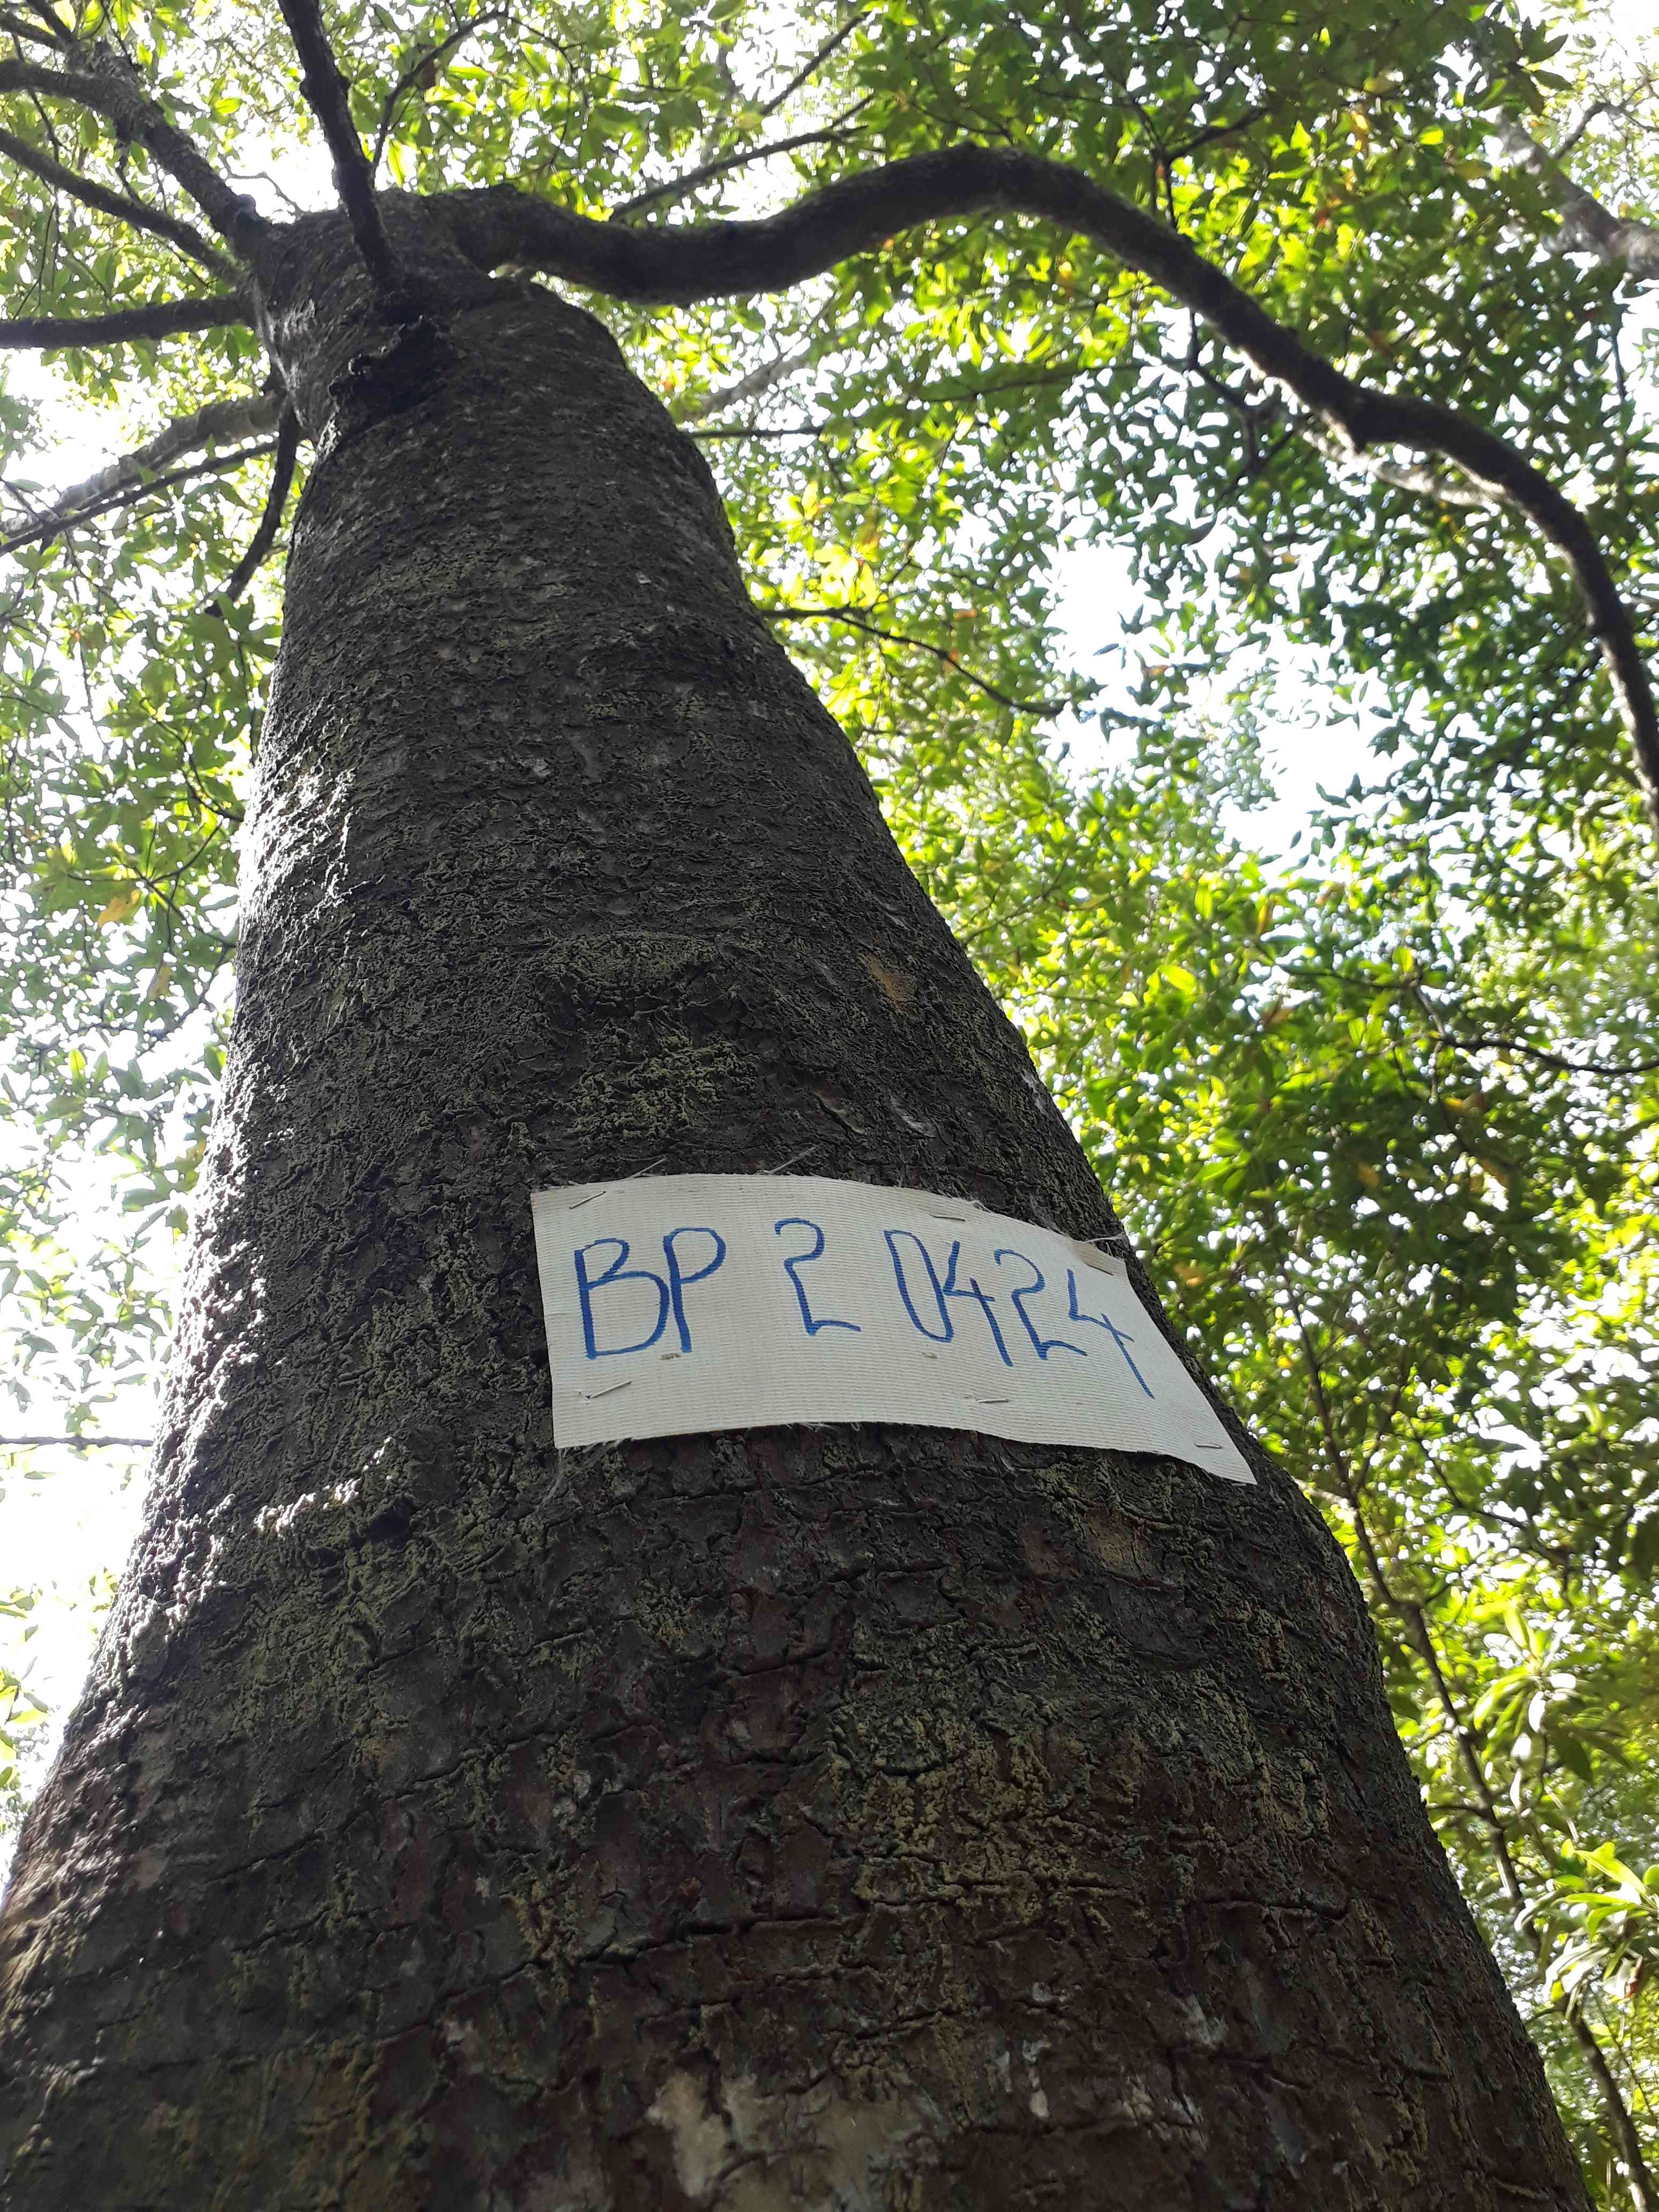 BP 2 0424